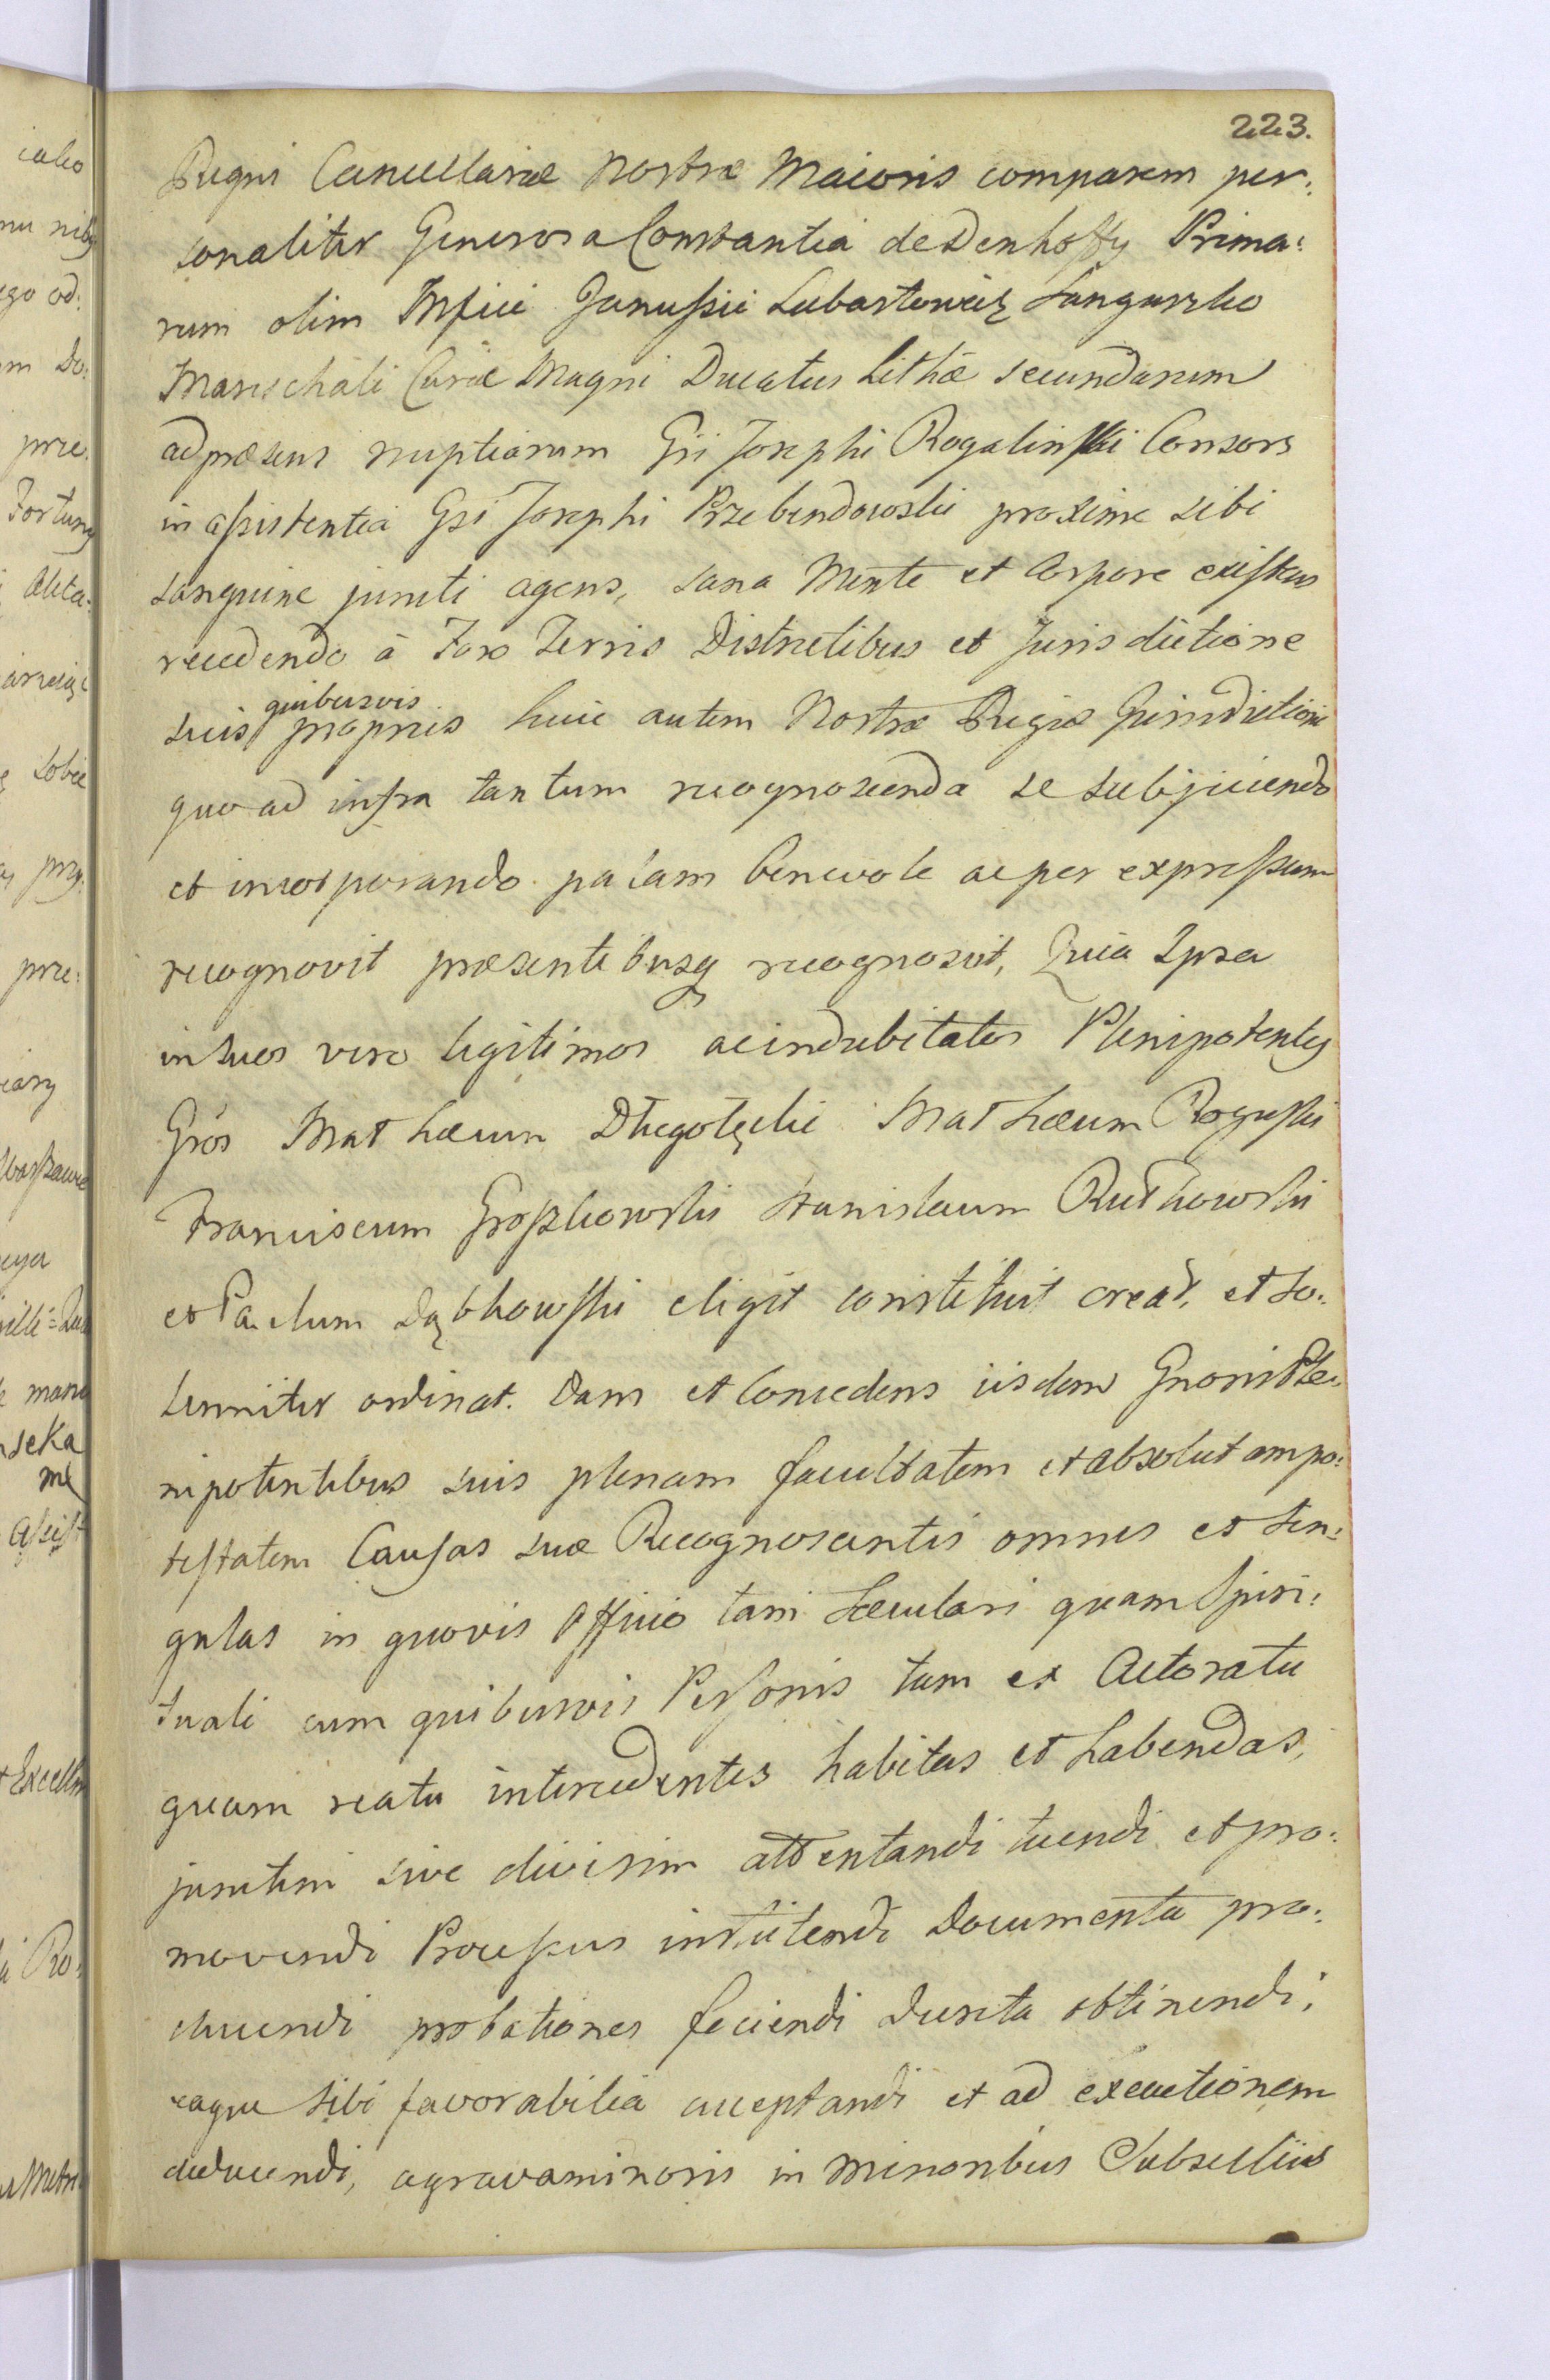 223.
Regni Cancellariæ Nostræ Maioris comparem per:
sonaliter Generosa Constantia de Denhoffy Prima:
rum olim Mfici Janußii Lubartowicz Sanguszko
Marschali Curiæ Magni Ducatus Lithæ secundarum
ad præsens nuptiarum Gsi Josephi Rogalinski Consors
in aßistentia Gsi Josephi Przebendowski proxime sibi
sanguine juncti agens, sana Mente et Corpore existens
recedendo à Foro Terris Districtibus et Jurisdictione
suis quibusvis propriis huic autem Nostræ Regiæ Jurisdictioni
quo ad infra tantum recognoscenda se subjiciendo
et incorporando palam benevole ac per expressum
recognovit præsentibusq recognoscit, Quia Ipsa
in suos vero legitimos ac indubitatos Plenipotentes
Gsos Mathæum Długołęcki Mathæum Roguski
Franciscum Groszkowski Stanislaum Rutkowski
et Paulum Dąbkowski eligit constituit creat, et so:
lenniter ordinat. Dans et Concedens iisdem Gnosis Ple:
nipotentibus suis plenam facultatem et absolutam po:
testatem Causas suæ Recognoscentis omnes et sin:
gulas in quovis Officio tam Sæculari quam Spiri:
tuali cum quibusvis Personis tam ex Actoratu
quam reatu intercedentes habitas et habendas,
junctim sive divisim attentandi tuendi et pro:
movendi Processus instituendi Documenta pro:
ducendi probationes faciendi Decreta obtinendi,
eaque sibi favorabilia acceptandi et ad executionem
deducendi, agravaminosis in Minoribus Subselliis